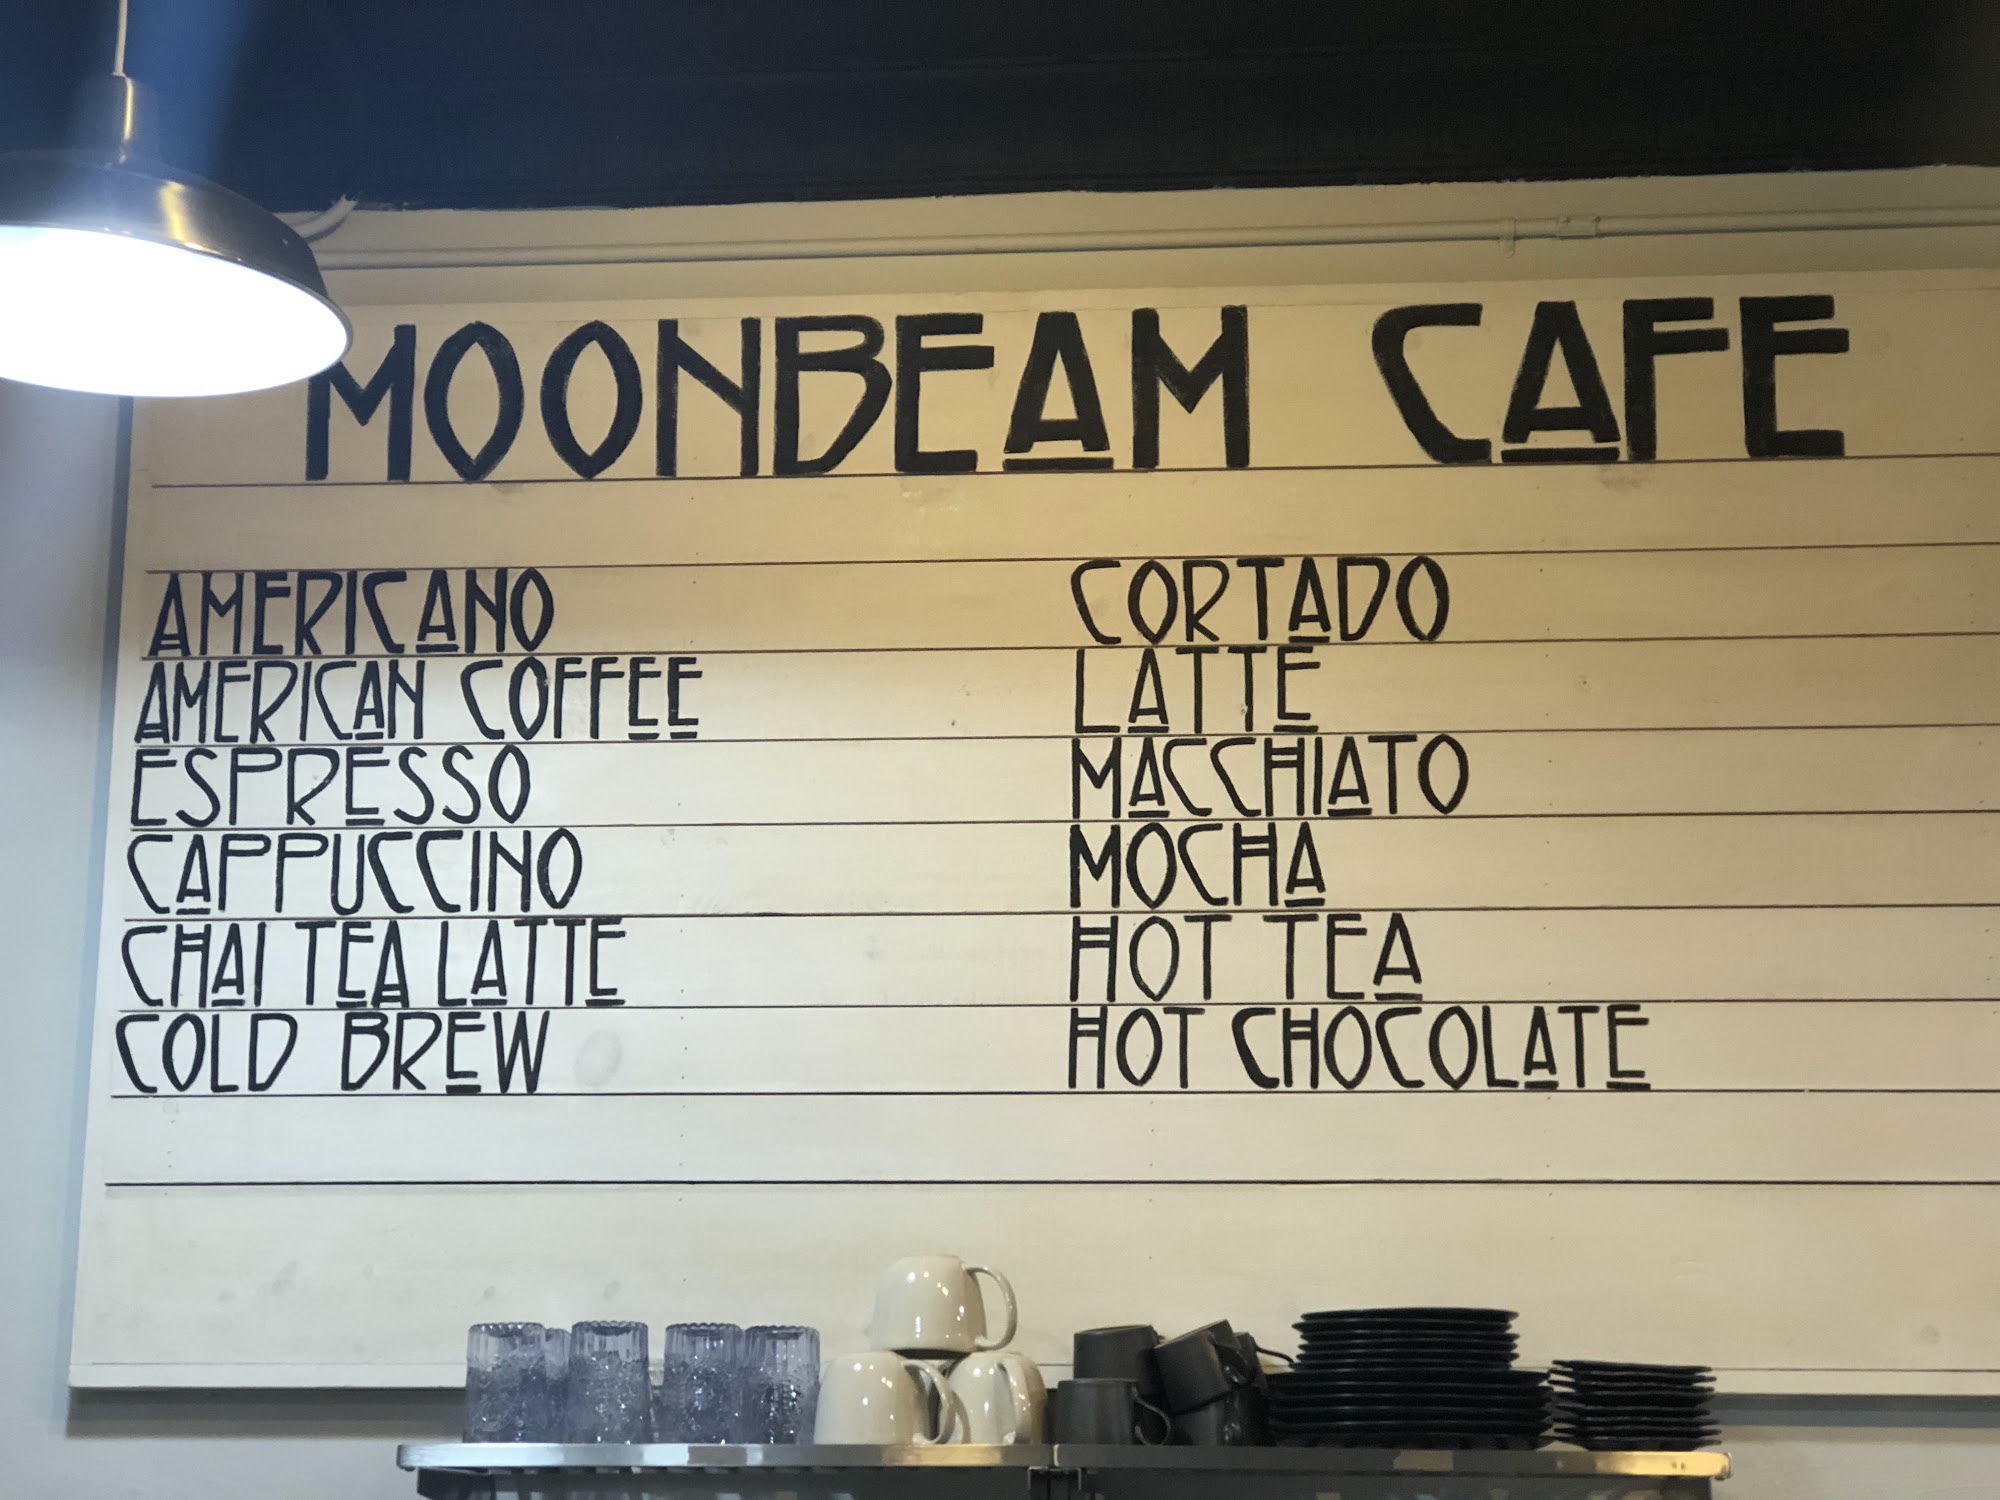 MOONBEAM CAFE
AMERICANO
AMERICAN COFFEE
ESPRESSO
CAPPUCCINO
CHAI TEA LATTE
COLD BREW
CORTADO
LATTE
MACCHIATO
MOCHA
HOT TEA
HOT CHOCOLATE